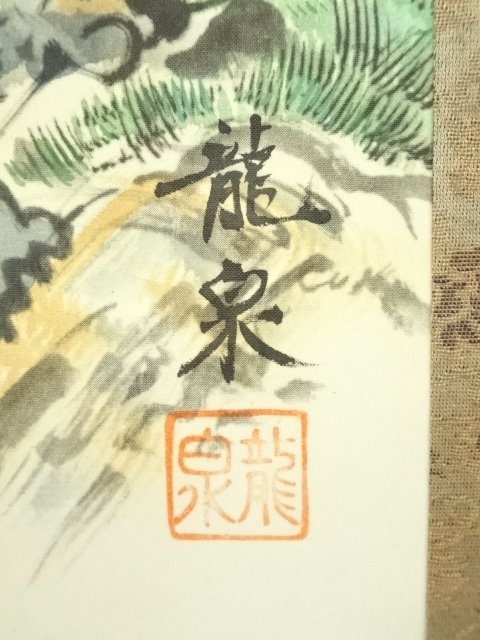 龍
泉
龍
泉